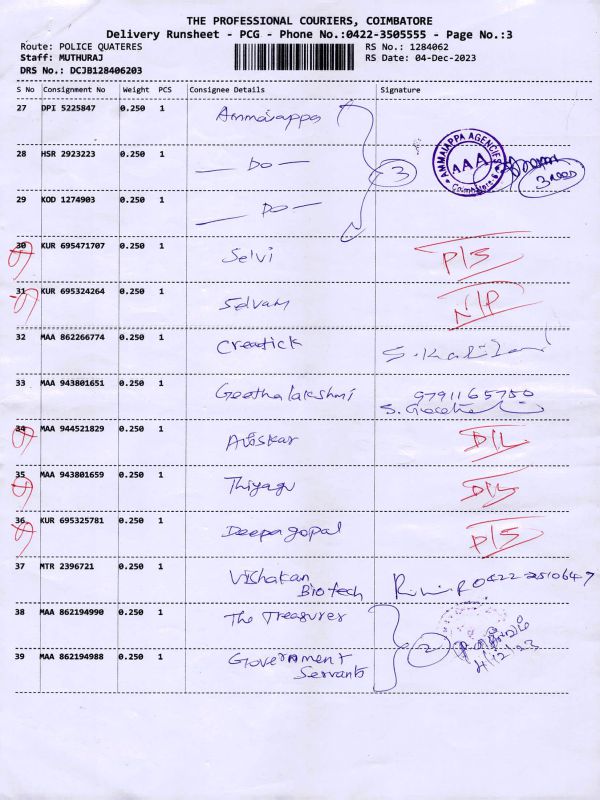 THE PROFESSIONAL COURIERS, COIMBATORE
Delivery Runsheet - PCG - Phone No.:0422-3505555 - Page No.:3
Route: POLICE QUATERES
RS No.: 1284062
Staff: MUTHURAJ
RS Date: 04-Dec-2023
DRS No.: DCJB128406203
S No Consignment No Weight PCS Consignee Details Signature
27 DPI 5225847 0.250 1 Ammaiappa
28 HSR 2923223 0.250 1 — Do — 3 AMMAIAPPA AGENCIES AAA Coimbatore
29 KOD 1274903 0.250 1 — Do —
30 KUR 695471707 0.250 1 Selvi P/S
31 KUR 695324264 0.250 1 Selvam N/P
32 MAA 862266774 0.250 1 Creatick
33 MAA 943801651 0.250 1 Geethalakshmi 9791165750
34 MAA 944521829 0.250 1 D/L
35 MAA 943801659 0.250 1 Thiyagu D/L
36 KUR 695325781 0.250 1 Deepagopal P/S
37 MTR 2396721 0.250 1 Vishakan Biotech 0422-2510647
38 MAA 862194990 0.250 1 The Treasurer
39 MAA 862194988 0.250 1 Government Servants 2 4/12/23